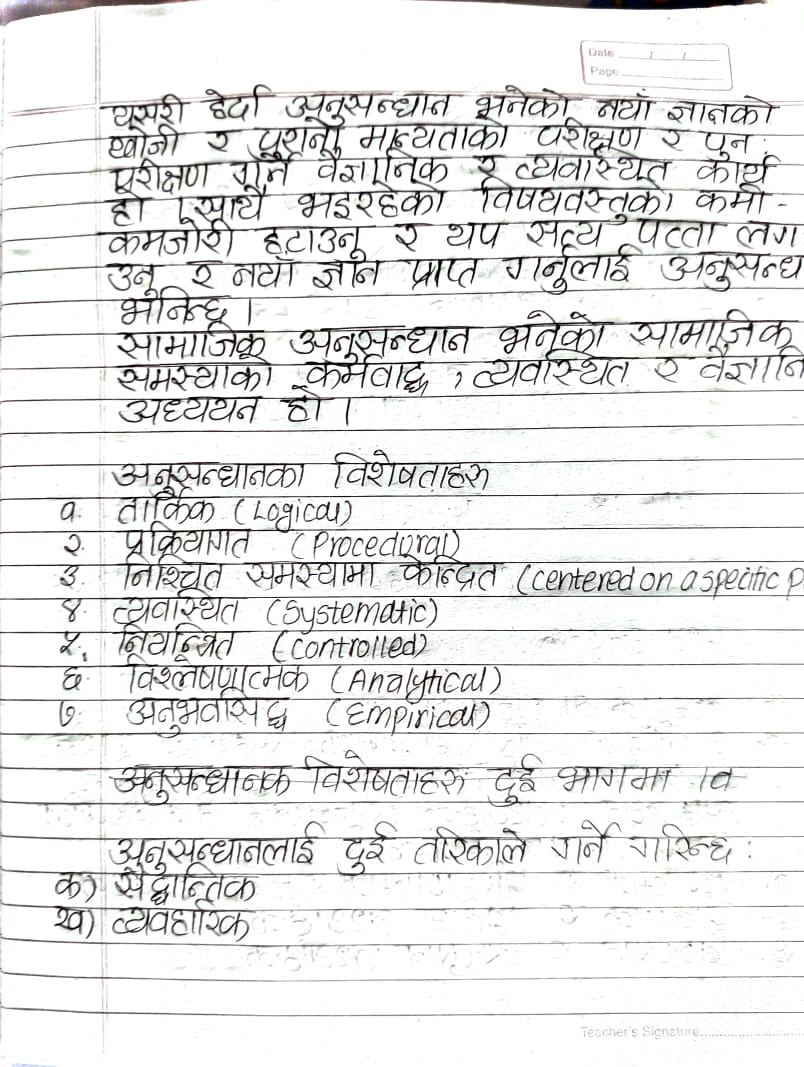 Date / /
Page
यसरी हेर्दा अनुसन्धान भनेको नयाँ ज्ञानको
खोजी र पुरानो मान्यताको परीक्षण र पुनः
परीक्षण गर्ने वैज्ञानिक र व्यवास्थित कार्य
हो । साथै भइरहेको विषयवस्तुको कमी-
कमजोरी हटाउनु र थप सत्य पत्ता लगा
उनु र नयाँ ज्ञान प्राप्त गर्नुलाई अनुसन्ध
भनिन्छ ।
सामाजिक अनुसन्धान भनेको सामाजिक
समस्याको कर्मवाद्ध, व्यवस्थित र वैज्ञानि
अध्ययन हो ।
अनुसन्धानका विशेषताहरु
१. तार्किक (Logical)
२. प्रक्रियागत (Procedural)
३. निश्चित समस्यामा केन्द्रित (centered on a specific P
४. व्यवास्थित (Systematic)
५. नियन्त्रित (controlled)
६. विश्लेषणात्मक (Analytical)
७. अनुभवसिद्ध (Empirical)
अनुसन्धानक विशेषताहरु दुई भागमा
अनुसन्धानलाई दुई तरिकाले गर्ने गरिन्छ :
क) सैद्धान्तिक
ख) व्यवहारिक
Teacher's Signature